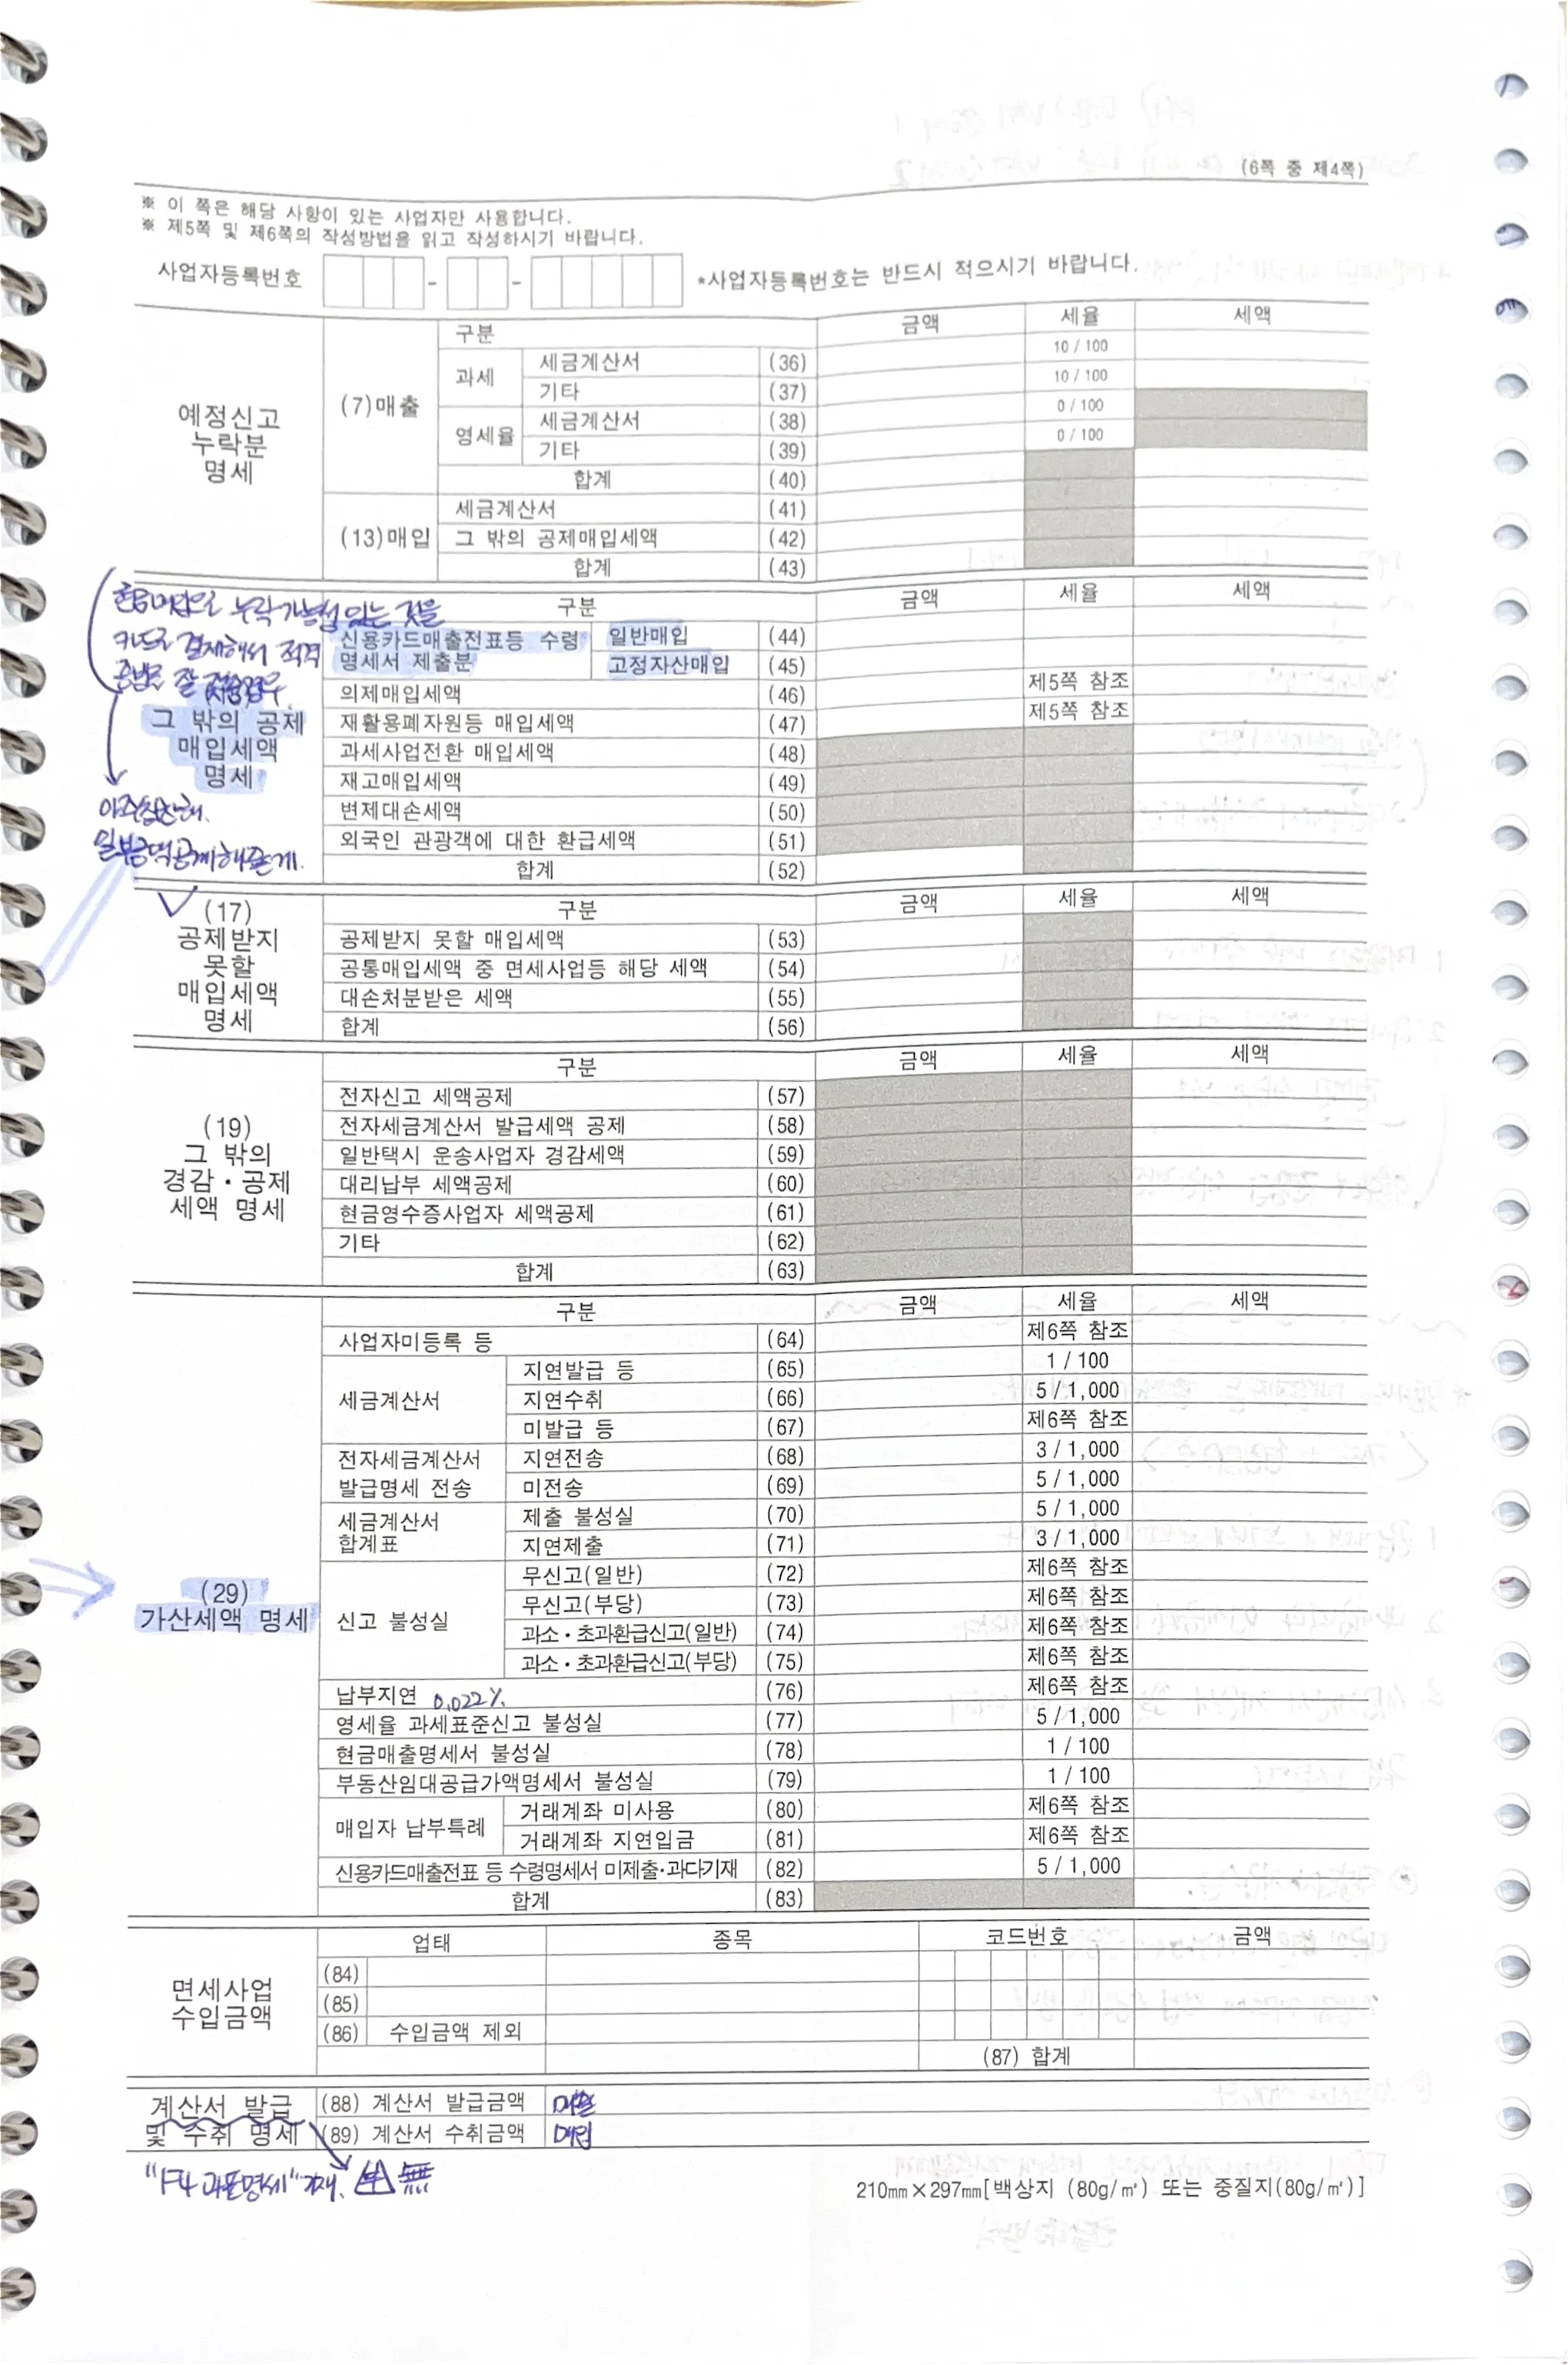 (6쪽 중 제4쪽)
※ 이 쪽은 해당 사항이 있는 사업자만 사용합니다.
※ 제5쪽 및 제6쪽의 작성방법을 읽고 작성하시기 바랍니다.
사업자등록번호 - - *사업자등록번호는 반드시 적으시기 바랍니다.
예정신고
누락분
명세
구분 금액 세율 세액
(7)매출
과세 세금계산서 (36) 10 / 100
기타 (37) 10 / 100
영세율 세금계산서 (38) 0 / 100
기타 (39) 0 / 100
합계 (40)
(13)매입
세금계산서 (41)
그 밖의 공제매입세액 (42)
합계 (43)
누락가능성 있는 것을
카드로 결제해서 적격
그 밖의 공제
매입세액
명세
아쉬
일부금액공제해줄게.
구분 금액 세율 세액
신용카드매출전표등 수령
명세서 제출분
일반매입 (44)
고정자산매입 (45)
의제매입세액 (46) 제5쪽 참조
재활용폐자원등 매입세액 (47) 제5쪽 참조
과세사업전환 매입세액 (48)
재고매입세액 (49)
변제대손세액 (50)
외국인 관광객에 대한 환급세액 (51)
합계 (52)
(17)
공제받지
못할
매입세액
명세
구분 금액 세율 세액
공제받지 못할 매입세액 (53)
공통매입세액 중 면세사업등 해당 세액 (54)
대손처분받은 세액 (55)
합계 (56)
(19)
그 밖의
경감・공제
세액 명세
구분 금액 세율 세액
전자신고 세액공제 (57)
전자세금계산서 발급세액 공제 (58)
일반택시 운송사업자 경감세액 (59)
대리납부 세액공제 (60)
현금영수증사업자 세액공제 (61)
기타 (62)
합계 (63)
(29)
가산세액 명세
구분 금액 세율 세액
사업자미등록 등 (64) 제6쪽 참조
세금계산서
지연발급 등 (65) 1 / 100
지연수취 (66) 5 / 1,000
미발급 등 (67) 제6쪽 참조
전자세금계산서
발급명세 전송
지연전송 (68) 3 / 1,000
미전송 (69) 5 / 1,000
세금계산서
합계표
제출 불성실 (70) 5 / 1,000
지연제출 (71) 3 / 1,000
신고 불성실
무신고(일반) (72) 제6쪽 참조
무신고(부당) (73) 제6쪽 참조
과소・초과환급신고(일반) (74) 제6쪽 참조
과소・초과환급신고(부당) (75) 제6쪽 참조
납부지연 0.022% (76) 제6쪽 참조
영세율 과세표준신고 불성실 (77) 5 / 1,000
현금매출명세서 불성실 (78) 1 / 100
부동산임대공급가액명세서 불성실 (79) 1 / 100
매입자 납부특례
거래계좌 미사용 (80) 제6쪽 참조
거래계좌 지연입금 (81) 제6쪽 참조
신용카드매출전표 등 수령명세서 미제출・과다기재 (82) 5 / 1,000
합계 (83)
면세사업
수입금액
업태 종목 코드번호 금액
(84)
(85)
(86) 수입금액 제외
(87) 합계
계산서 발급
및 수취 명세
(88) 계산서 발급금액 매출
(89) 계산서 수취금액 매입
"F4 과표명세" 無
210㎜×297㎜[백상지 (80g/㎡) 또는 중질지(80g/㎡)]